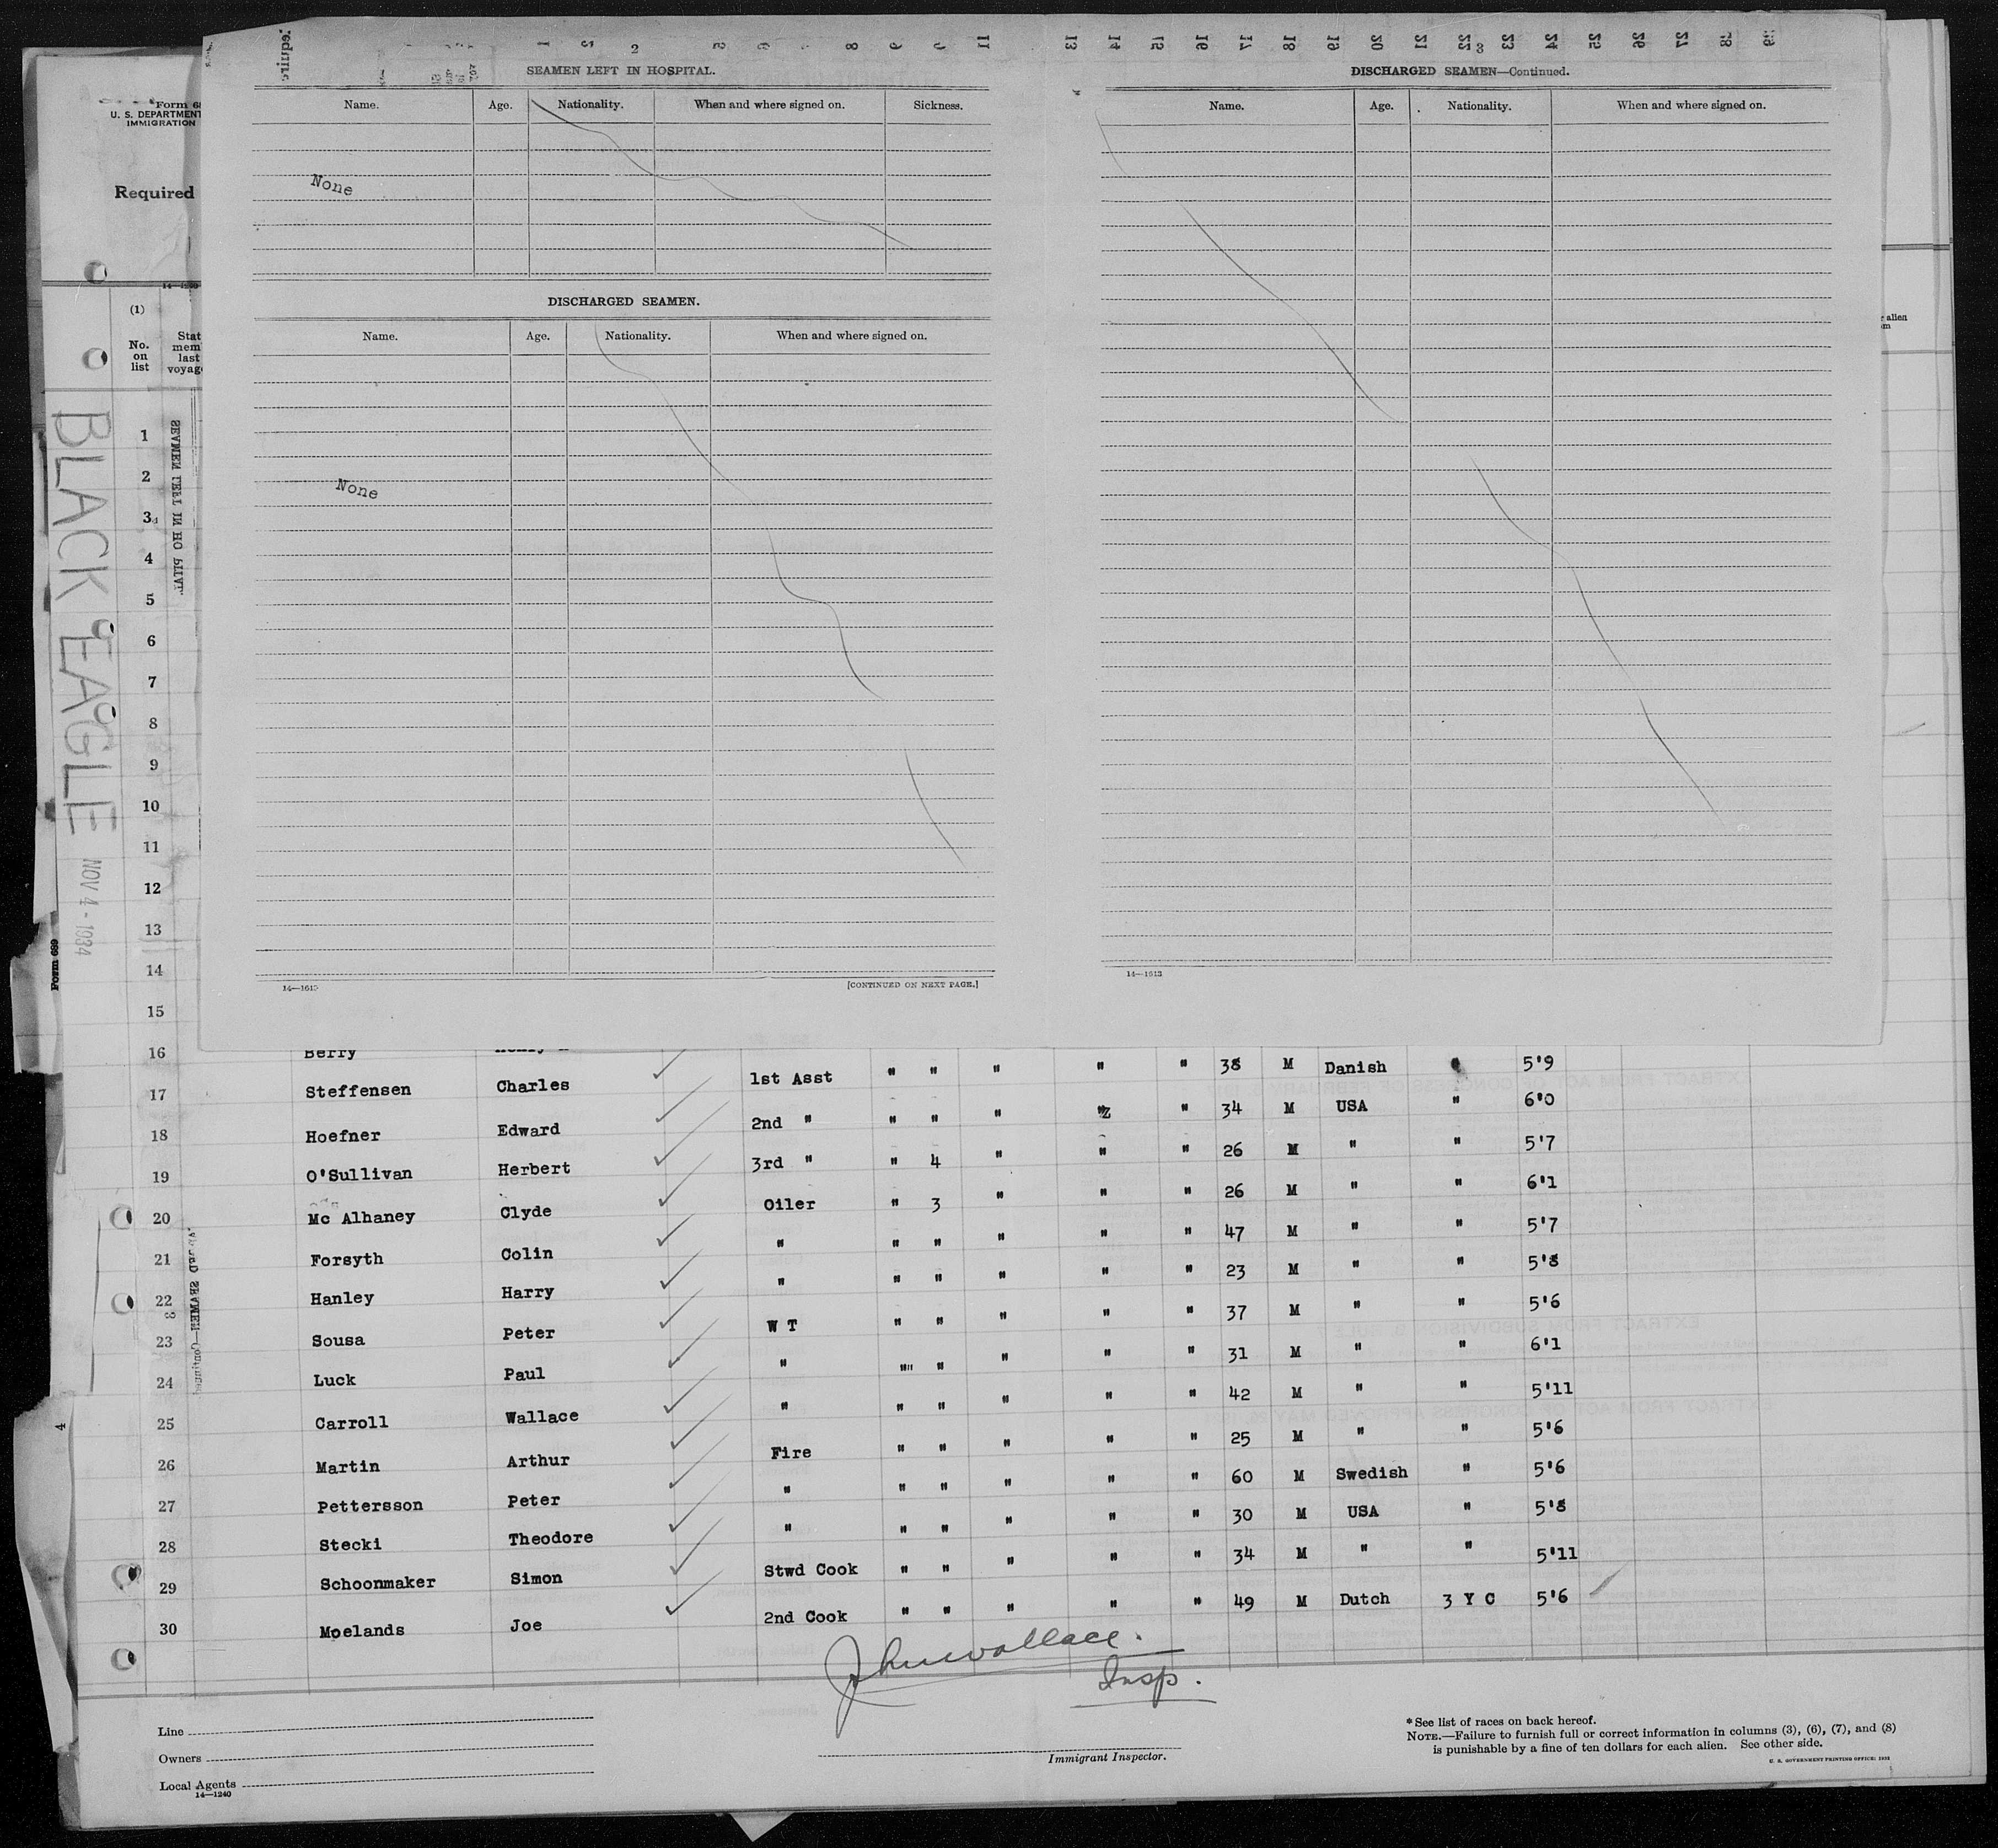 SEAMEN LEFT IN HOSPITAL.
Name. Age. Nationality. When and where signed on. Sickness.
None
DISCHARGED SEAMEN.
Name. Age. Nationality. When and where signed on.
None
14—1613 [CONTINUED ON NEXT PAGE.]
DISCHARGED SEAMEN—Continued.
Name. Age. Nationality. When and where signed on.
14—1613
U. S. DEPARTMENT
IMMIGRATION
Required
(1)
No. on list
BLACK EAGLE NOV 4 - 1934
Form 689
1
2
3
4
5
6
7
8
9
10
11
12
13
14
15
16 Berry
17 Steffensen Charles 1st Asst " " " " " 38 M Danish 5'9
18 Hoefner Edward 2nd " " " " " 34 M USA " 6'0
19 O'Sullivan Herbert 3rd " " 4 " " " 26 M " " 5'7
20 Mc Alhaney Clyde Oiler " 3 " " " 26 M " " 6'1
21 Forsyth Colin " " " " " " 47 M " " 5'7
22 Hanley Harry " " " " " " 23 M " " 5'8
23 Sousa Peter W T " " " " " 37 M " " 5'6
24 Luck Paul " " " " " " 31 M " " 6'1
25 Carroll Wallace " " " " " " 42 M " " 5'11
26 Martin Arthur Fire " " " " " 25 M " " 5'6
27 Pettersson Peter " " " " " " 60 M Swedish " 5'6
28 Stecki Theodore " " " " " " 30 M USA " 5'8
29 Schoonmaker Simon Stwd Cook " " " " " 34 M " " 5'11
30 Moelands Joe 2nd Cook " " " " " 49 M Dutch 3 Y C 5'6
John Wallace.
Insp.
Line
Owners
Local Agents
14—1240
Immigrant Inspector.
* See list of races on back hereof.
NOTE.—Failure to furnish full or correct information in columns (3), (6), (7), and (8)
is punishable by a fine of ten dollars for each alien. See other side.